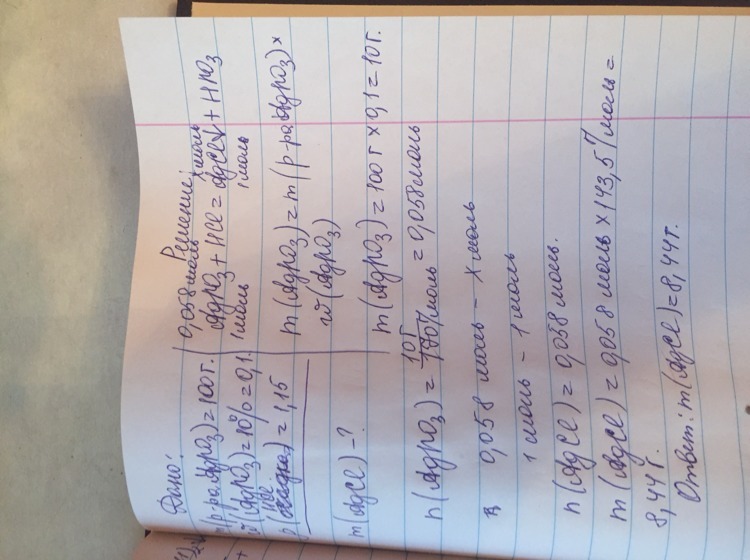 Дано:
m(р-ра AgNO3)=100г.
w(AgNO3)=10%=0,1.
ρ(HCl)=1,15
m(AgCl)-?
Решение:
0,058 моль х моль
AgNO3 + HCl = AgCl↓ + HNO3
1 моль 1 моль
m(AgNO3) = m(р-ра AgNO3) ×
w(AgNO3)
m(AgNO3) = 100 г × 0,1 = 10г.
n(AgNO3) = 10г / 170г/моль = 0,058 моль
0,058 моль - х моль
1 моль - 1 моль
n(AgCl) = 0,058 моль.
m(AgCl) = 0,058 моль × 143,5 г/моль =
8,44г.
Ответ: m(AgCl) = 8,44г.